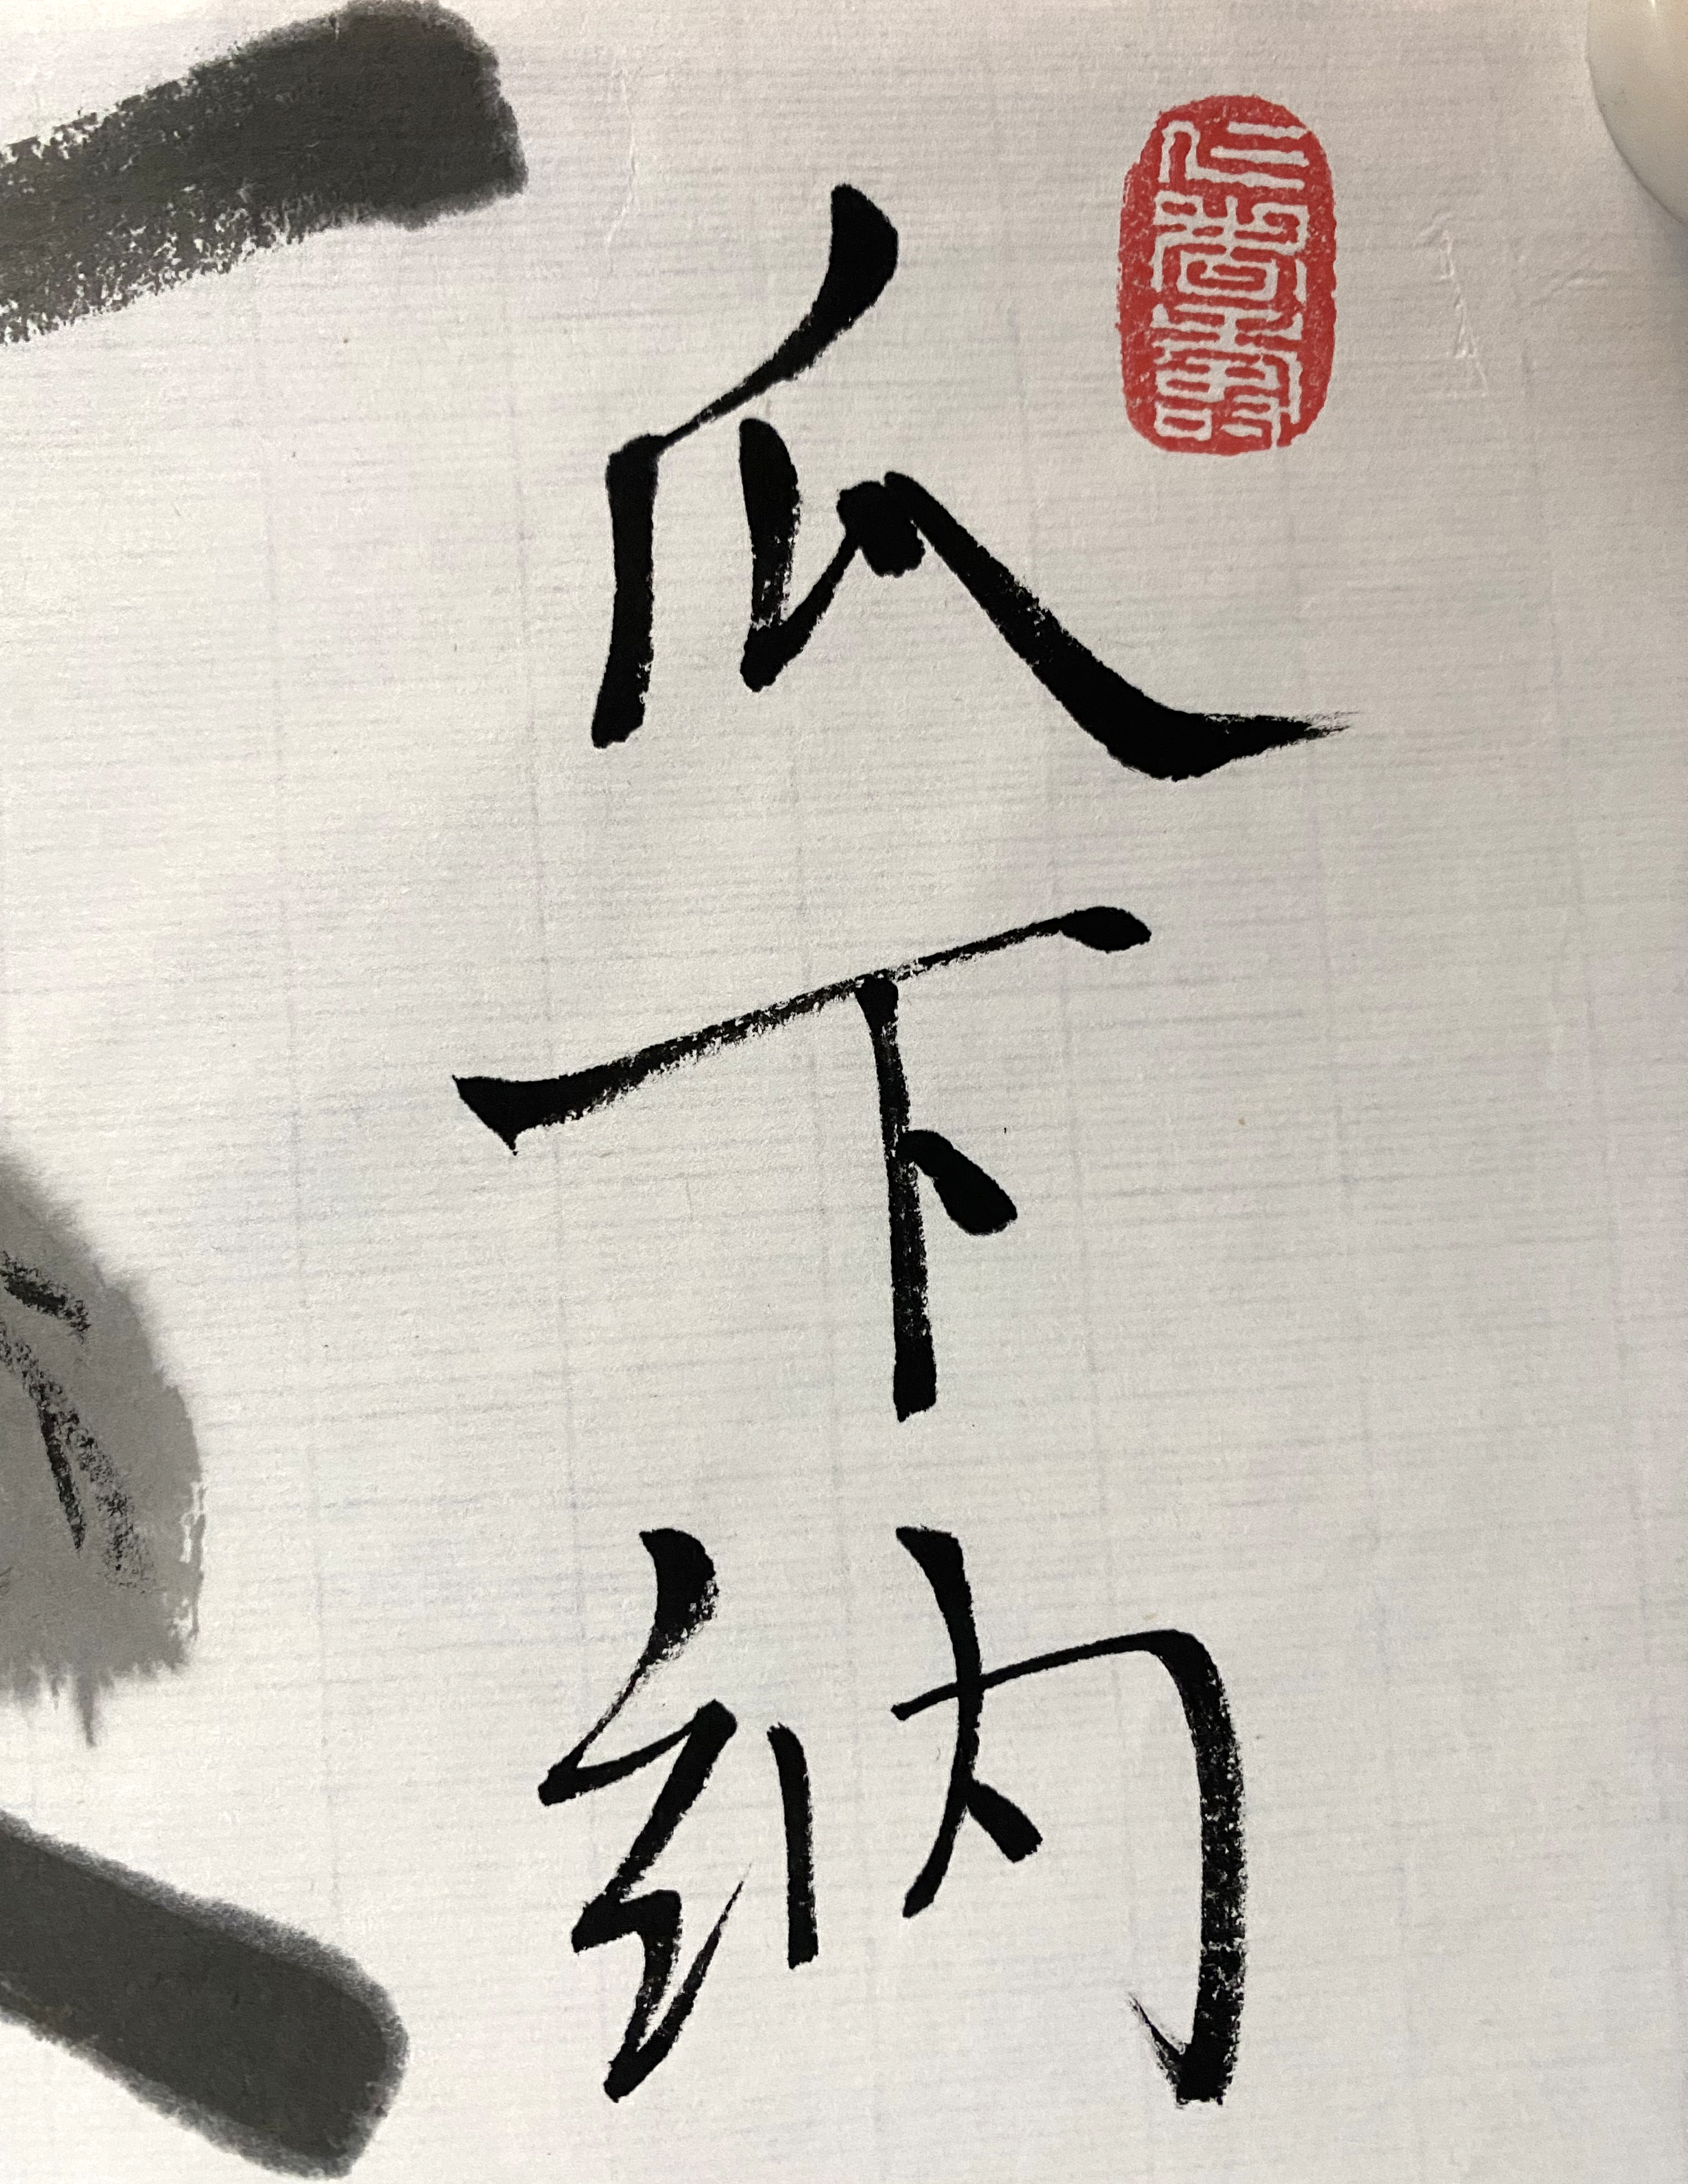 瓜下納